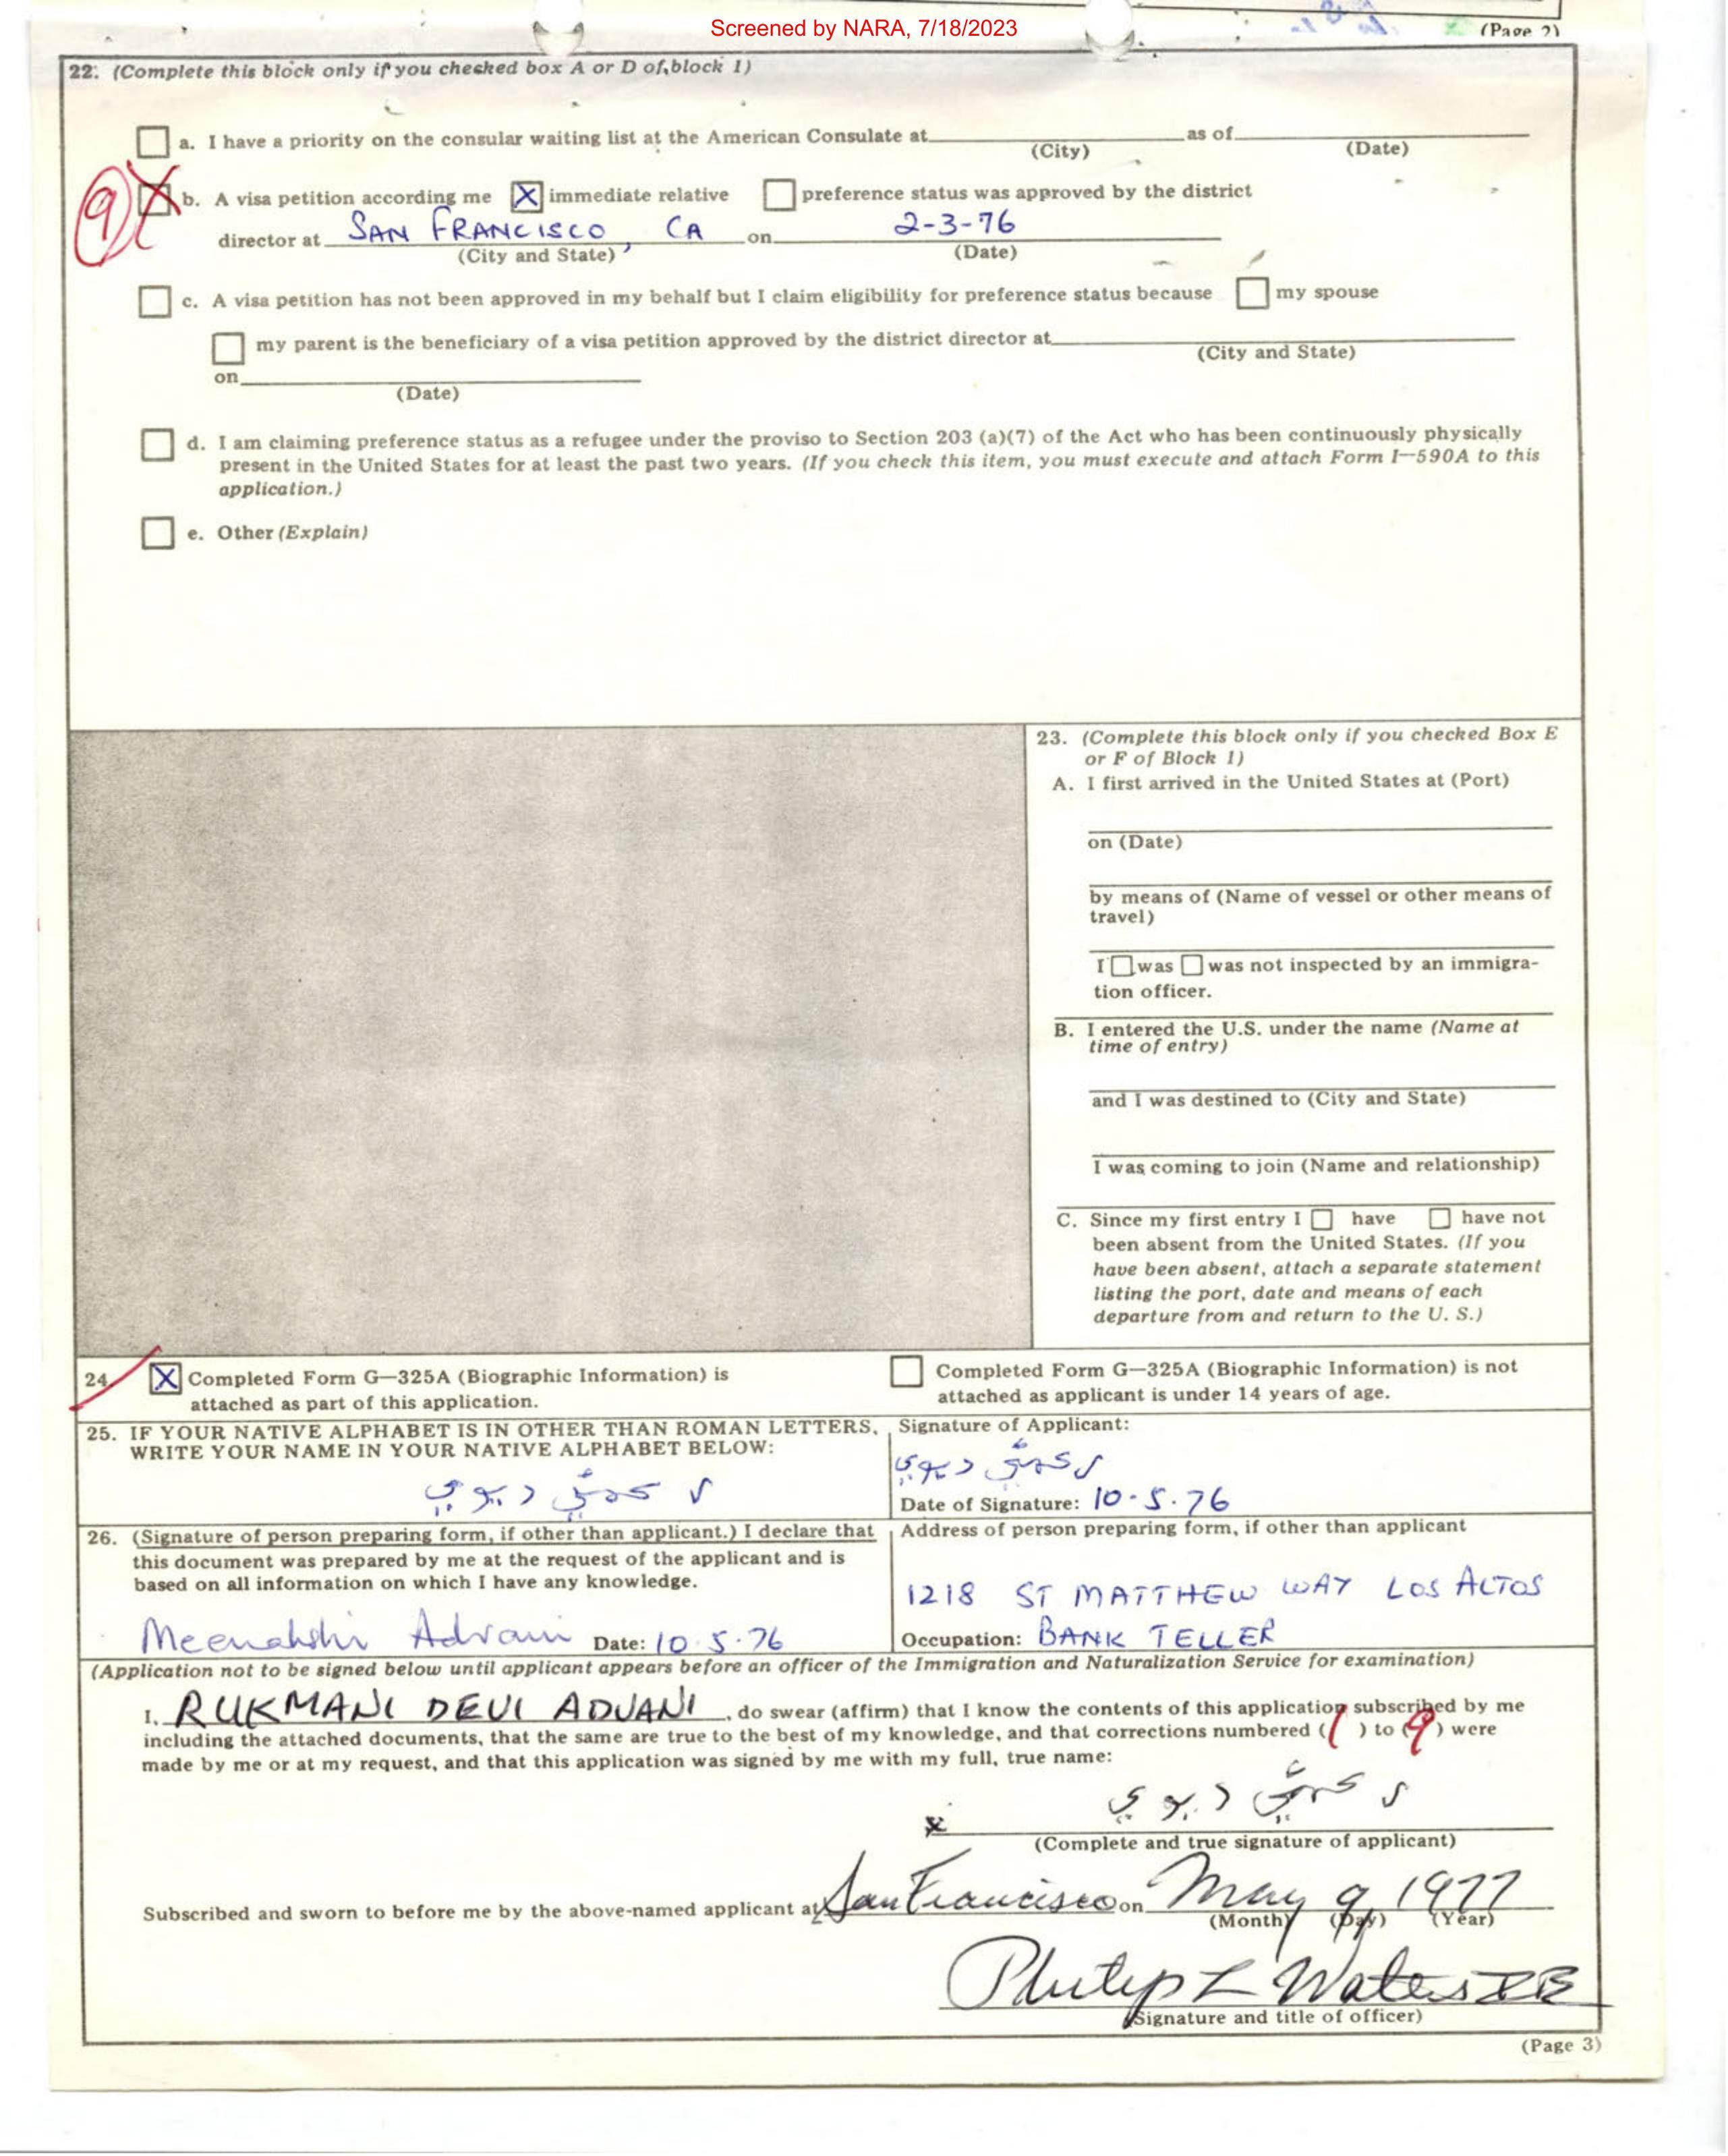 Screened by NARA, 7/18/2023
(Page 2)
22. (Complete this block only if you checked box A or D of block 1)
a. I have a priority on the consular waiting list at the American Consulate at as of
(City) (Date)
9 X b. A visa petition according me X immediate relative preference status was approved by the district
director at SAN FRANCISCO, CA on 2-3-76
(City and State) (Date)
c. A visa petition has not been approved in my behalf but I claim eligibility for preference status because my spouse
my parent is the beneficiary of a visa petition approved by the district director at
(City and State)
on
(Date)
d. I am claiming preference status as a refugee under the proviso to Section 203 (a)(7) of the Act who has been continuously physically
present in the United States for at least the past two years. (If you check this item, you must execute and attach Form I-590A to this
application.)
e. Other (Explain)
23. (Complete this block only if you checked Box E
or F of Block 1)
A. I first arrived in the United States at (Port)
on (Date)
by means of (Name of vessel or other means of
travel)
I was was not inspected by an immigra-
tion officer.
B. I entered the U.S. under the name (Name at
time of entry)
and I was destined to (City and State)
I was coming to join (Name and relationship)
C. Since my first entry I have have not
been absent from the United States. (If you
have been absent, attach a separate statement
listing the port, date and means of each
departure from and return to the U. S.)
24 X Completed Form G-325A (Biographic Information) is
attached as part of this application.
Completed Form G-325A (Biographic Information) is not
attached as applicant is under 14 years of age.
25. IF YOUR NATIVE ALPHABET IS IN OTHER THAN ROMAN LETTERS,
WRITE YOUR NAME IN YOUR NATIVE ALPHABET BELOW:
Signature of Applicant:
Date of Signature: 10-5-76
26. (Signature of person preparing form, if other than applicant.) I declare that
this document was prepared by me at the request of the applicant and is
based on all information on which I have any knowledge.
Meenakshi Advani Date: 10-5-76
Address of person preparing form, if other than applicant
1218 ST MATTHEW WAY LOS ALTOS
Occupation: BANK TELLER
(Application not to be signed below until applicant appears before an officer of the Immigration and Naturalization Service for examination)
I, RUKMANI DEVI ADVANI, do swear (affirm) that I know the contents of this application subscribed by me
including the attached documents, that the same are true to the best of my knowledge, and that corrections numbered (1) to (9) were
made by me or at my request, and that this application was signed by me with my full, true name:
x
(Complete and true signature of applicant)
Subscribed and sworn to before me by the above-named applicant at San Francisco on May 9, 1977
(Month) (Day) (Year)
Philip L Waters
(Signature and title of officer)
(Page 3)